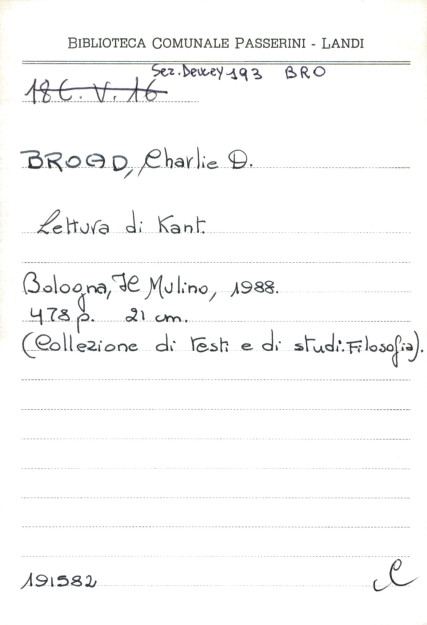 BIBLIOTECA COMUNALE PASSERINI - LANDI
Sez. Dewey 193 BRO
18C. V. 16
BROAD, Charlie D.
Lettura di Kant.
Bologna, Il Mulino, 1988.
478 p. 21 cm.
(Collezione di testi e di studi. Filosofia).
191582